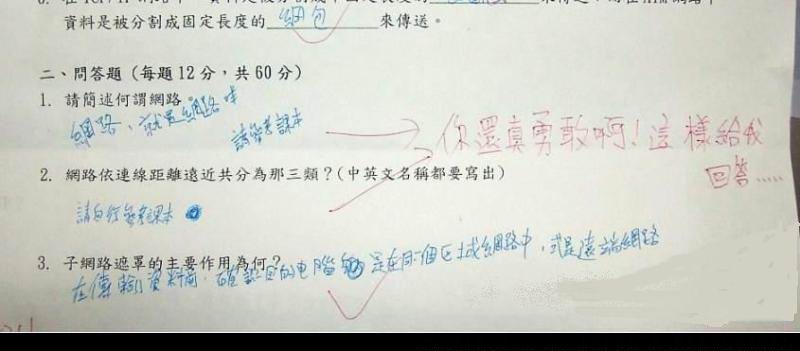 資料是被分割成固定長度的 網包 來傳送。
二、問答題（每題12分，共60分）
1. 請簡述何謂網路。
網路、就是網路咩
請參考課本
你還真勇敢啊！這樣給我
回答.....
2. 網路依連線距離遠近共分為那三類？(中英文名稱都要寫出)
請自行參考課本
3. 子網路遮罩的主要作用為何？
在傳輸資料前，確認目的电腦 是在同個区域網路中，或是遠端網路